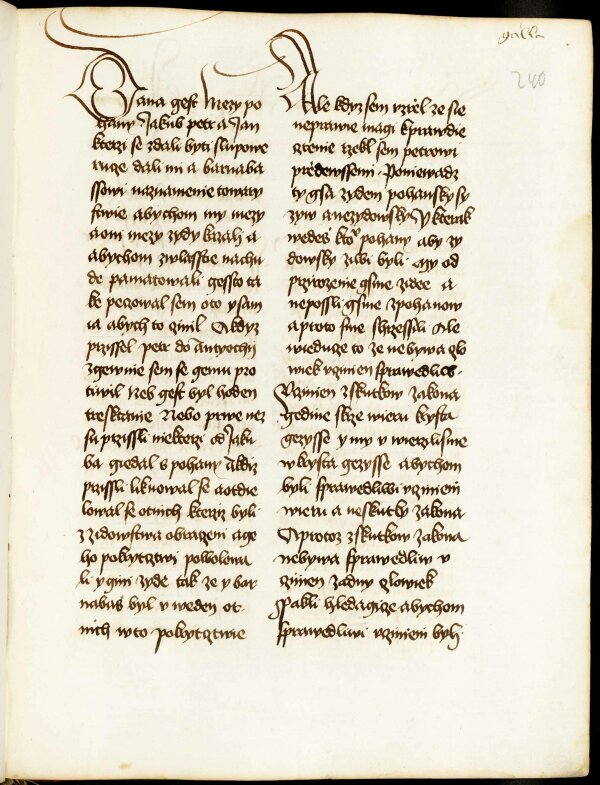 galla
240
Dana gest Mezy po
hany Jakub petr a Jan
kterzi se zdali byti slupowe
ruze dali mi a barnaba
ssowi naznamenie towarz
stwie abychom my mezy
a oni mezy zydy kazali a
abychom zwlasstie nachu
de pamatowali gessto ta
ke peczowal sem oto y sam
ia abych to czinil A kdyz
przissel petr do Antyochij
zgewnie sem se gemu pro
tiwil Neb gest byl hoden
tresktanie Nebo prwe nez
su przissli niekterzi od Jaku
ba giedal s pohany A kdiz
przissli liknowal se a otdie
lowal se otnich kterziz byli
z zidowstwa obrazeni a ge
ho pokrytztwi powolowa
li y gini zyde tak ze y bar
nabas byl v weden ot
nich w to pokrytztwie
Ale kdyz sem vzrzel ze sie
neprawie magi k prawdie
cztenie rzekl sem petrowi
przedewssemi Poniewadz
ty gsa zydem pohansky sy
zyw a nezydowsky y kterak
wedes ktomu pohany aby zy
dowsky ziwi byli My od
przirozenie gsme zidee a
nepossli gsme z pohanow
a proto sme shrzessili Ale
wieduze to ze nebywa czlo
wiek vczinien sprawedliwy
vczinien z skutkow zakona
gedine skrze wieru krysta
gezysse y my v wierzilisme
w krysta gezysse abychom
byli sprawedliwi vczinieni
wieru a neskutky zakona
A protoz z skutkow zakona
nebywa sprawedliw v
czinen zadny czlowiek
Pakli hledagicze abychom
sprawedliwi vczinieni byli